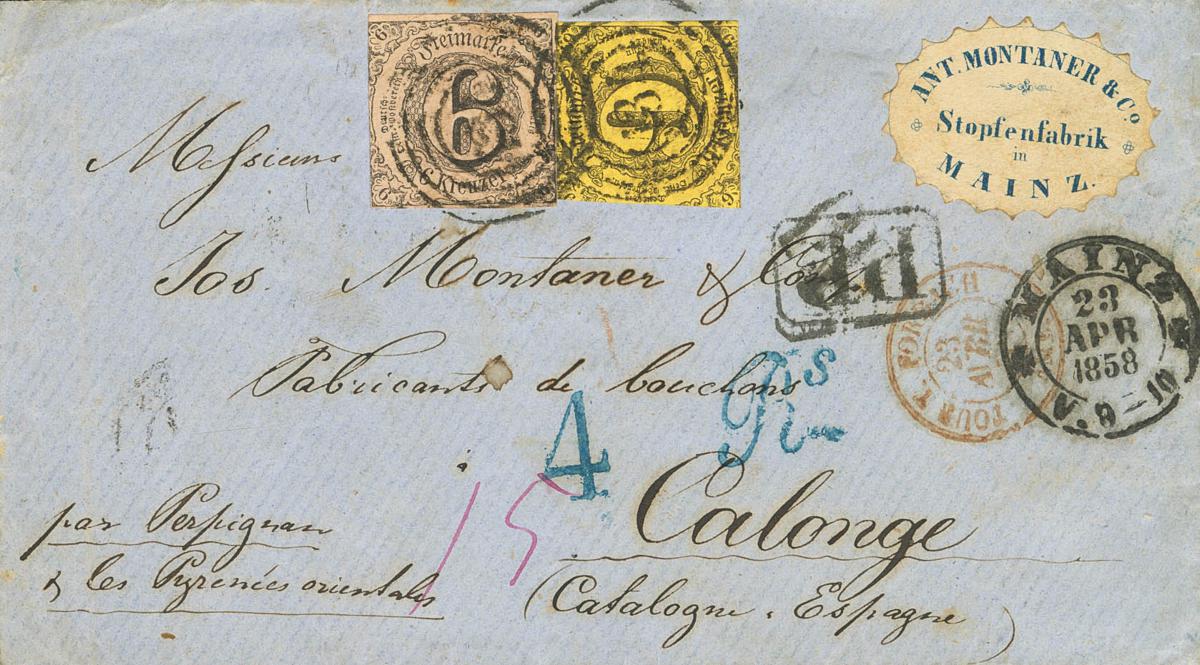 Freimarke
6
6 Kreuzer
9
ANT. MONTANER & Co.
Stopfenfabrik
in
MAINZ.
Messieurs
Jos. Montaner & Comp.
Fabricants de bouchons
PD
MAINZ
23
APR
1858
9-10
TOUR T. FORBACH
23
AVRIL
4 Rs
15
Calonge
par Perpignan
& les Pyrenées orientales
(Catalogne. Espagne)